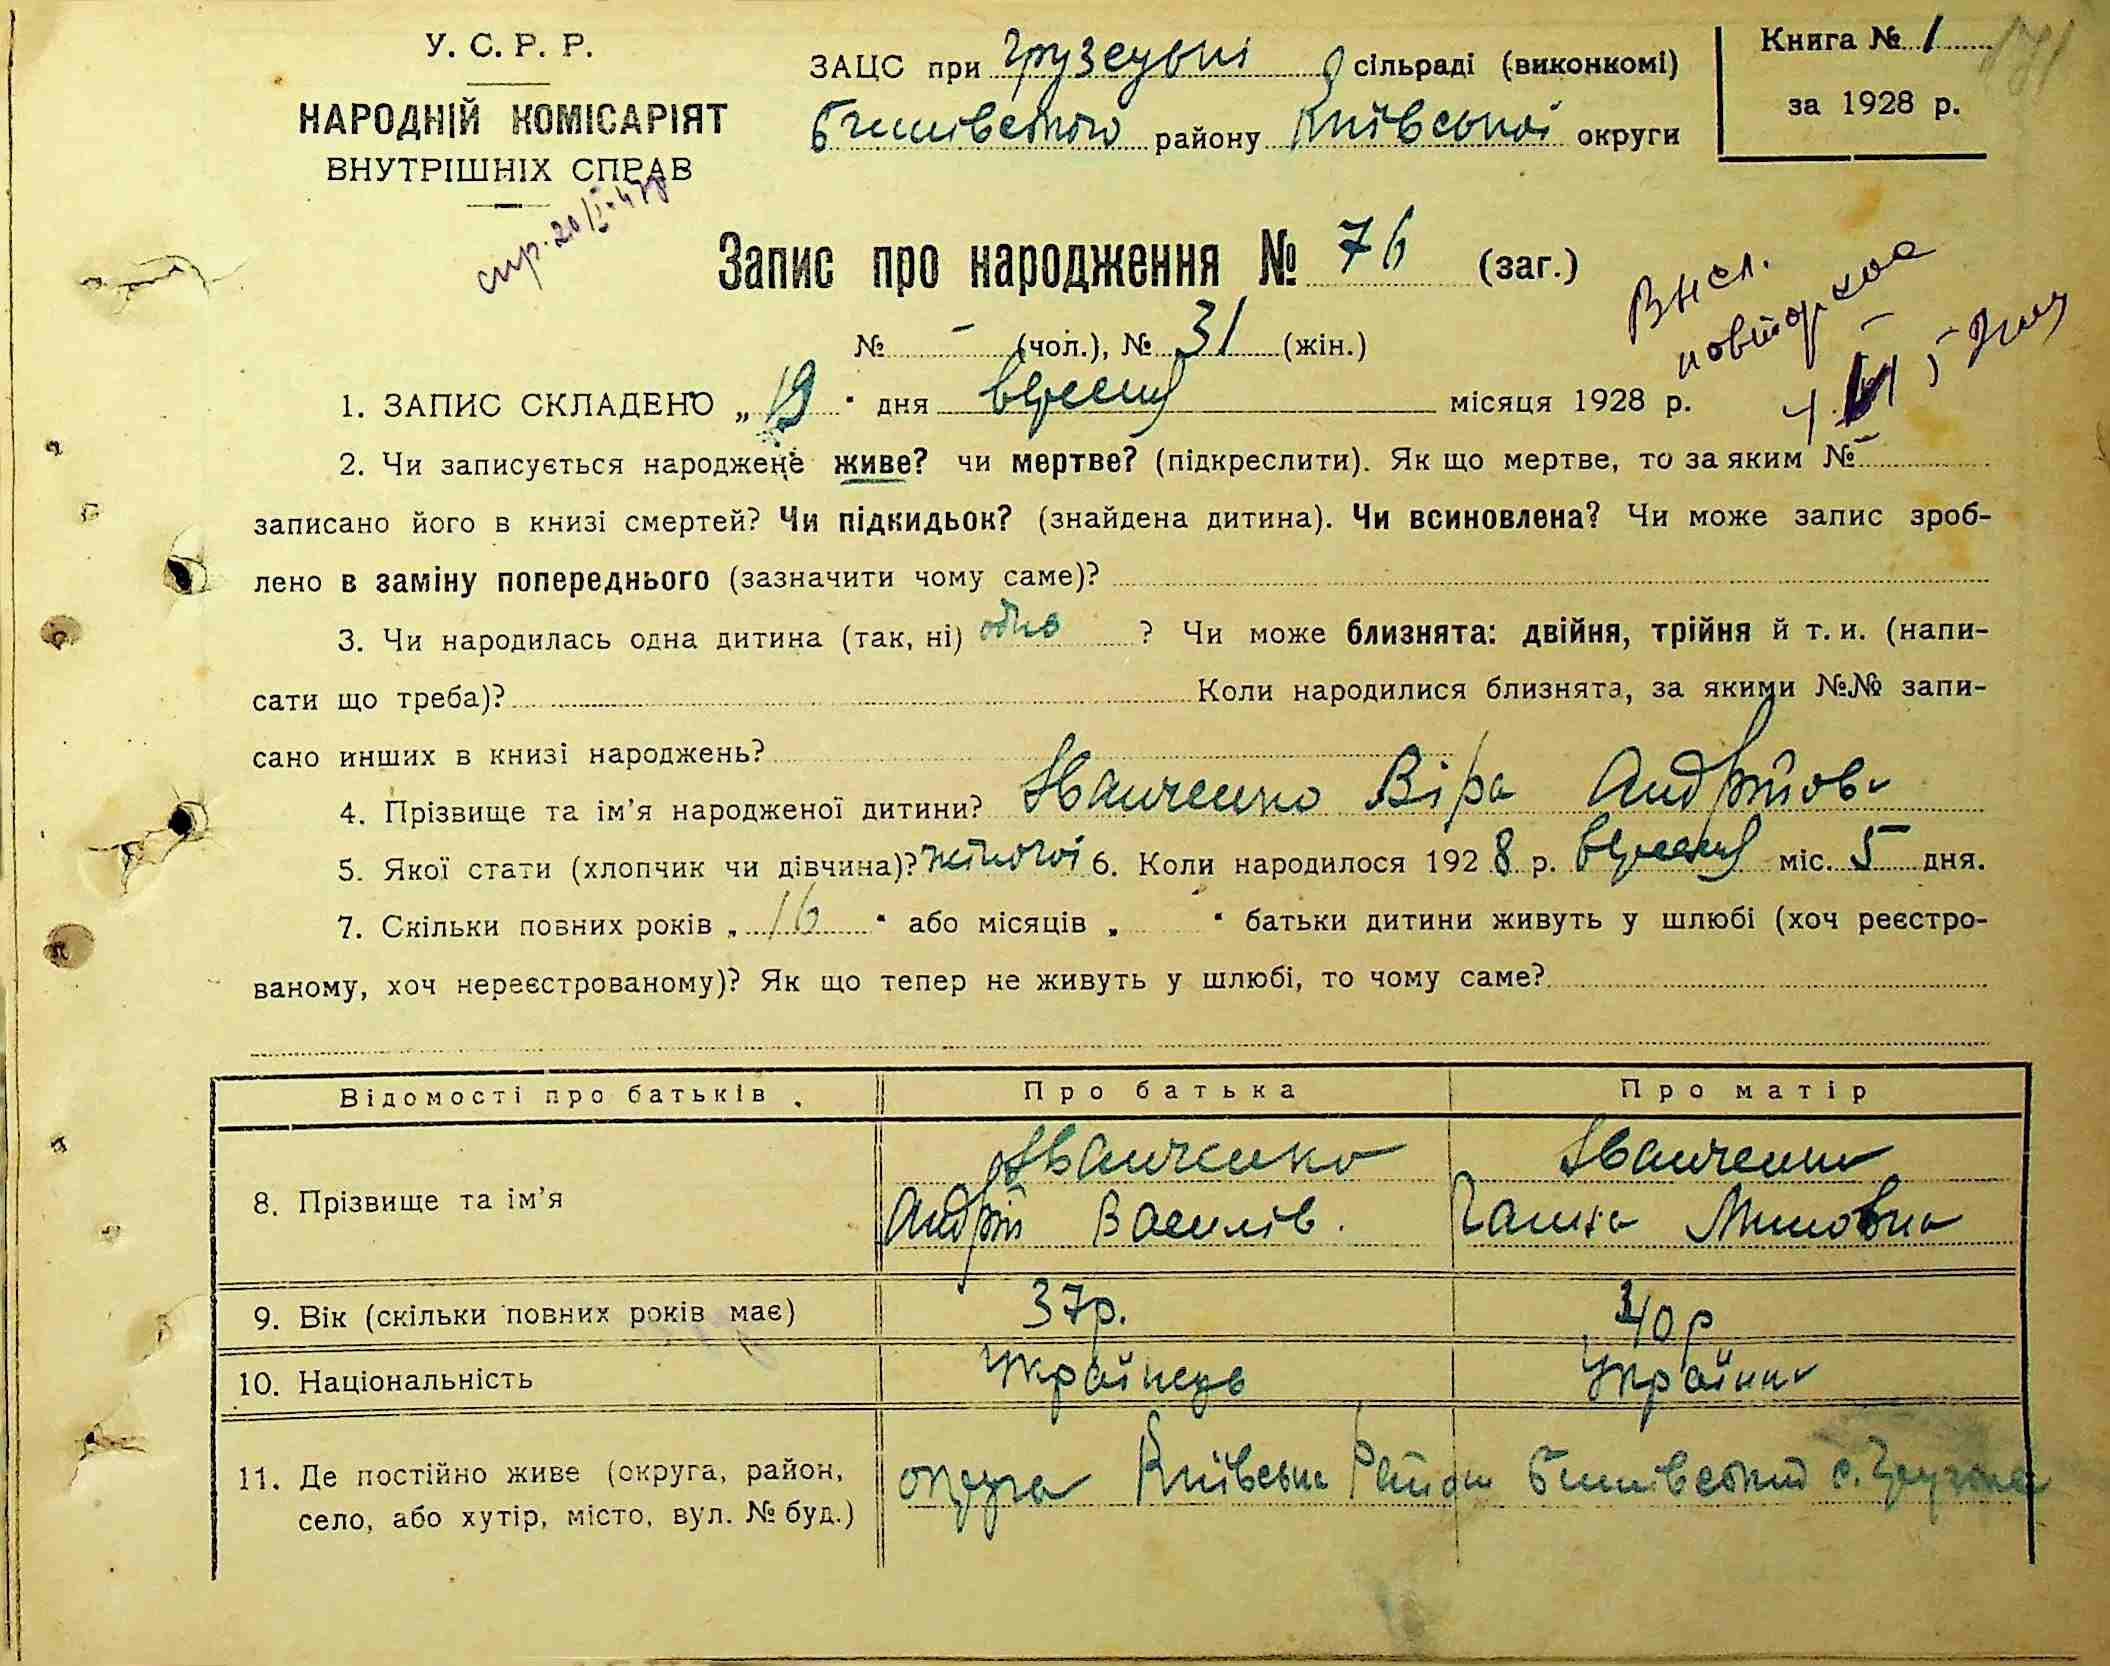 У. С. Р. Р.
НАРОДНІЙ КОМІСАРІЯТ
ВНУТРІШНІХ СПРАВ
ЗАЦС при Грузській сільраді (виконкомі)
Бишівського району Київської округи
Книга № 1
за 1928 р.
171
спр. 20/I-47р
Запис про народження № 76 (заг.)
№ - (чол.), № 31 (жін.)
Высл.
повторное
1. ЗАПИС СКЛАДЕНО „ 19 " дня вересня місяця 1928 р.
2. Чи записується народжене живе? чи мертве? (підкреслити). Як що мертве, то за яким № -
записано його в книзі смертей? Чи підкидьок? (знайдена дитина). Чи всиновлена? Чи може запис зроб-
лено в заміну попереднього (зазначити чому саме)?
3. Чи народилась одна дитина (так, ні) одна ? Чи може близнята: двійня, трійня й т. и. (напи-
сати що треба)? Коли народилися близнята, за якими №№ запи-
сано инших в книзі народжень?
4. Прізвище та ім'я народженої дитини? Іванченко Віра Андріїов.
5. Якої стати (хлопчик чи дівчина)? жіночої 6. Коли народилося 1928 р. вересня міс. 5 дня.
7. Скільки повних років „ 16 " або місяців „ " батьки дитини живуть у шлюбі (хоч реєстро-
ваному, хоч нереєстрованому)? Як що тепер не живуть у шлюбі, то чому саме?
Відомості про батьків Про батька Про матір
8. Прізвище та ім'я Іванченко Андрій Василів. Іванченко Ганна Миновна
9. Вік (скільки повних років має) 37р. 40р
10. Національність Українець Українка
11. Де постійно живе (округа, район, округа Київська Район Бишівський с. Грузьке
село, або хутір, місто, вул. № буд.)